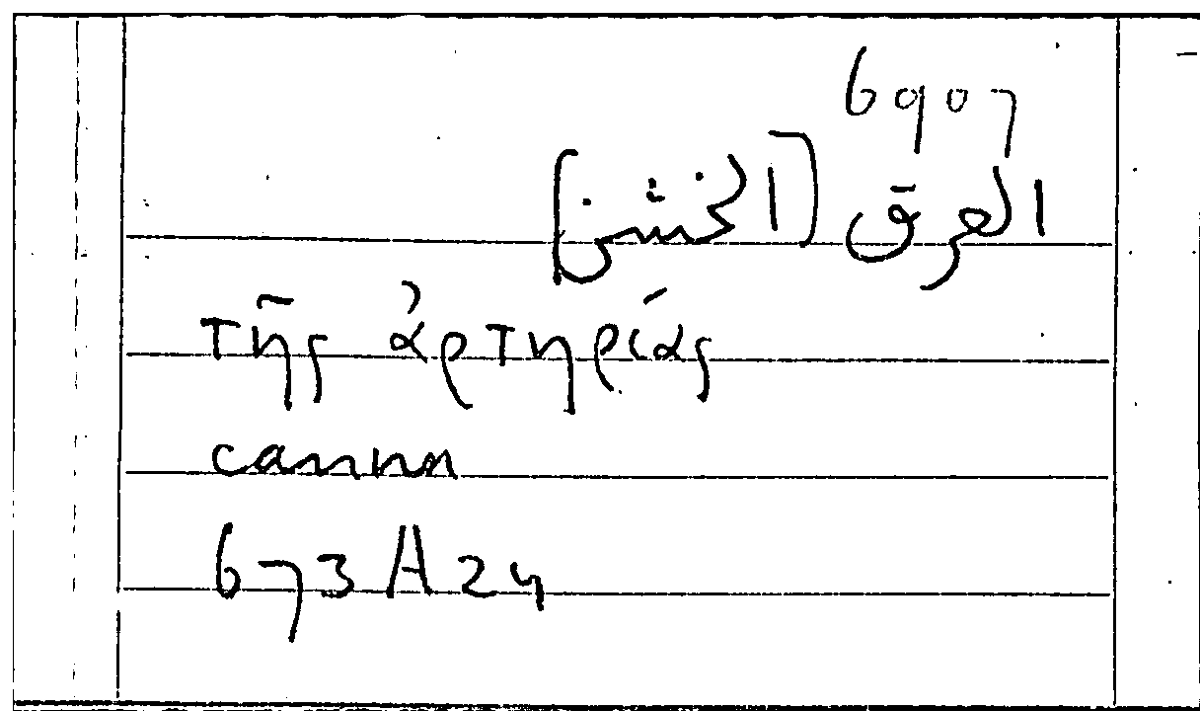 6907
العرق [الخشن]
τῆς ἀρτηρίας
canna
673A24